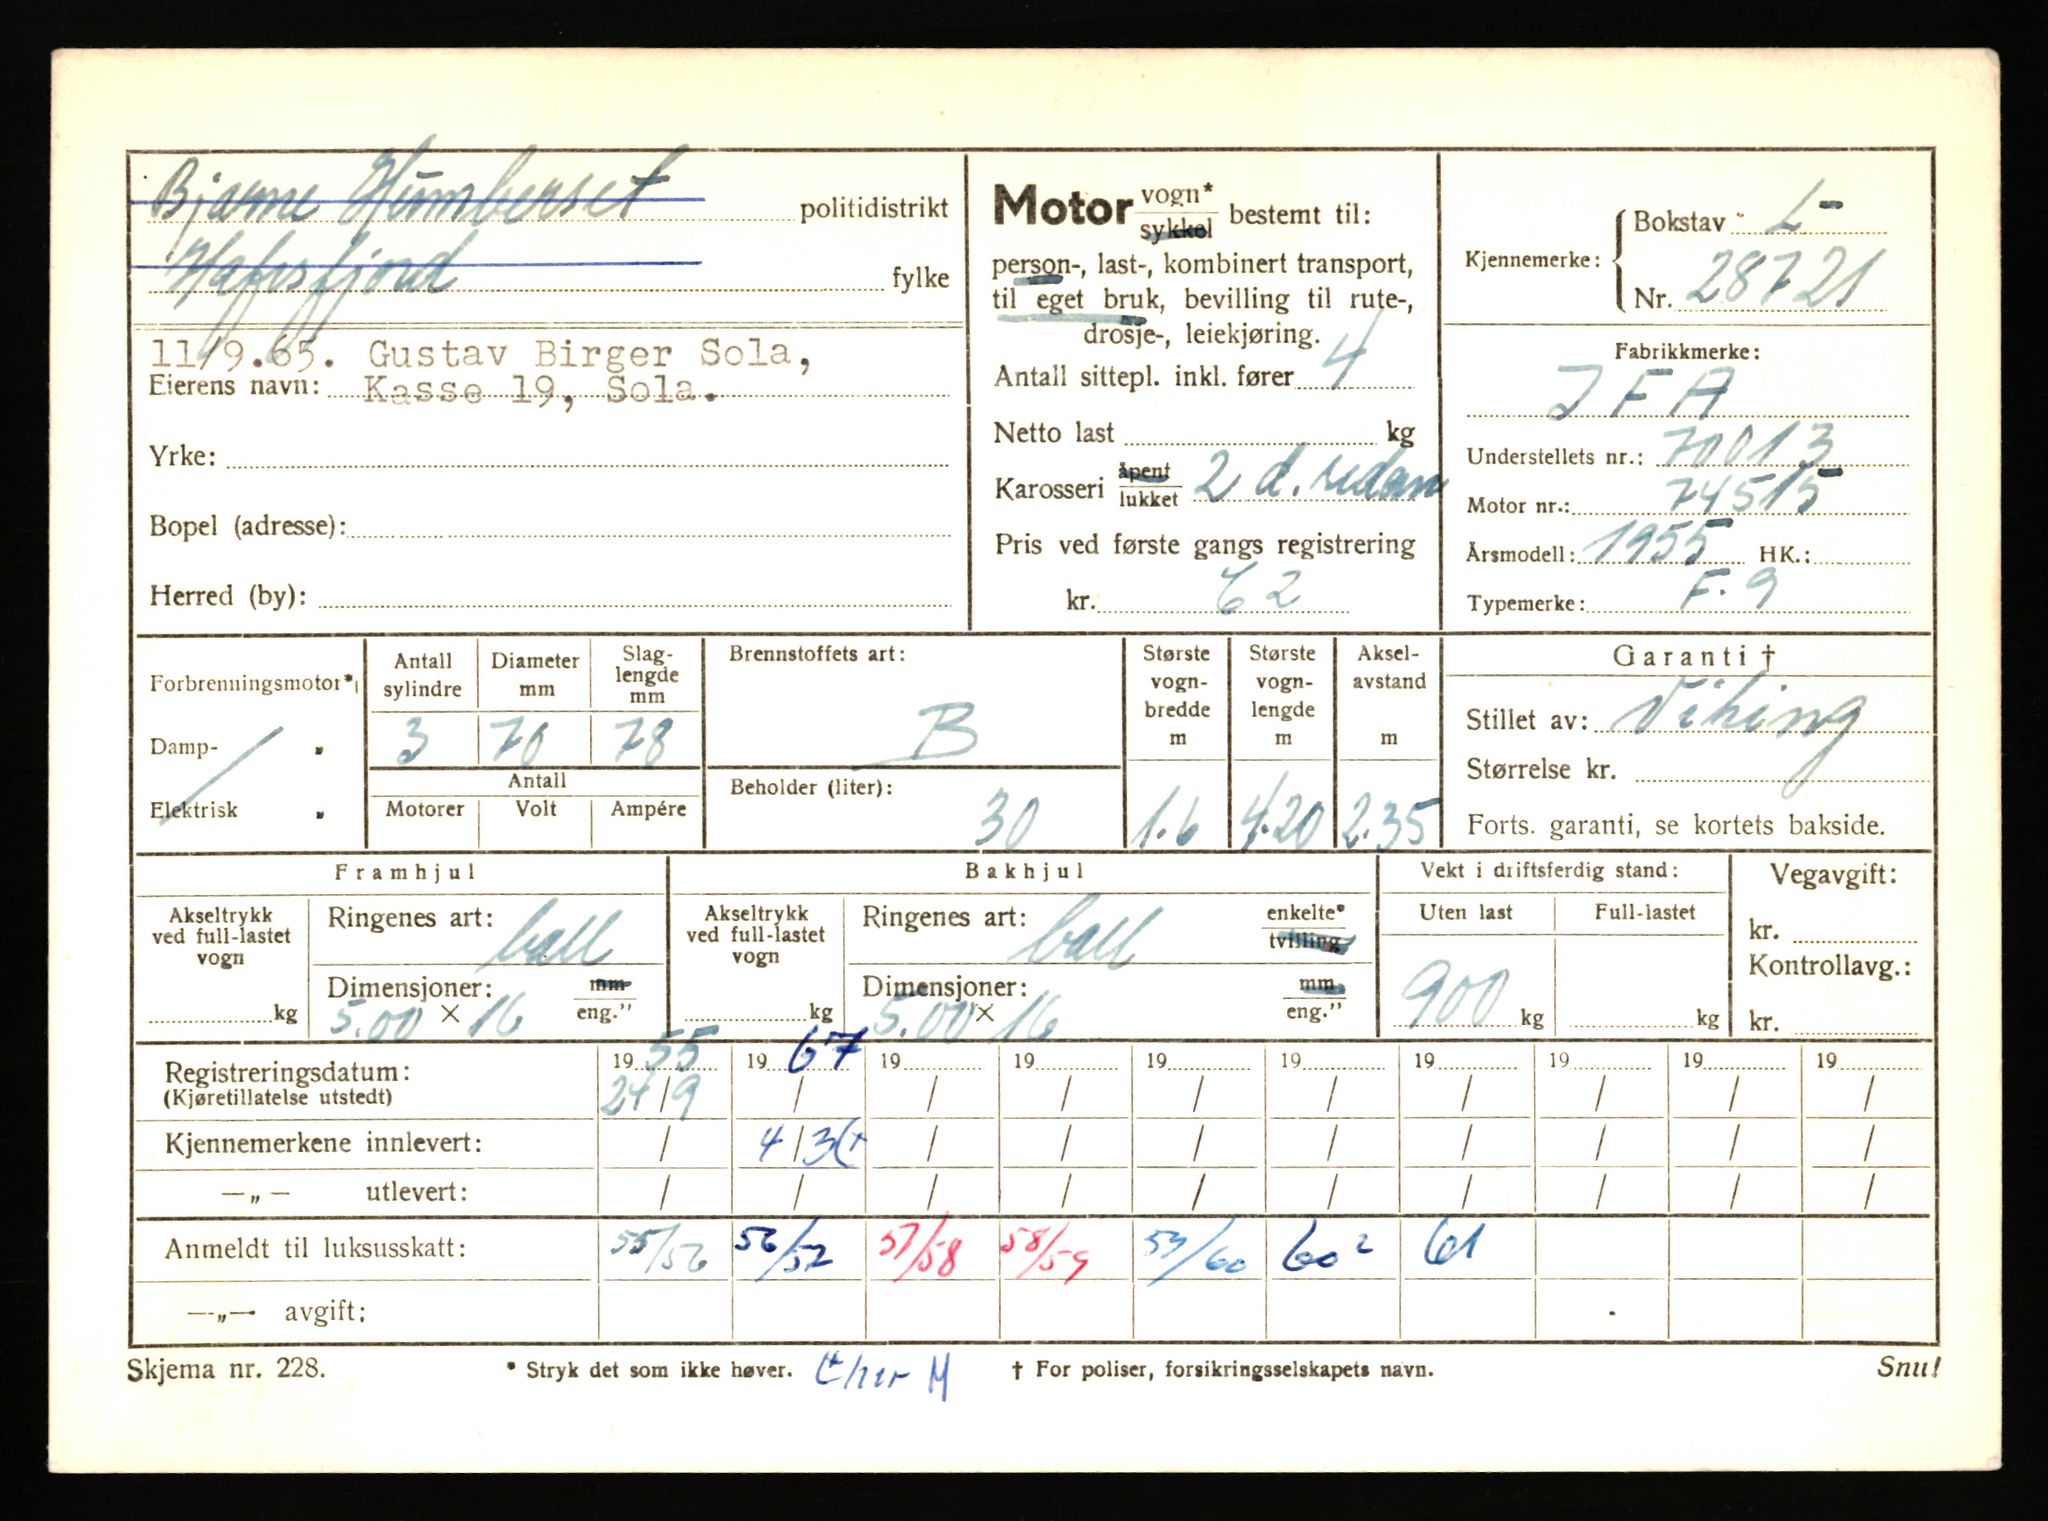 Bjarne Humberset politidistrikt
Hafrsfjord fylke
11/9.65. Gustav Birger Sola,
Eierens navn: Kasse 19, Sola.
Yrke:
Bopel (adresse):
Herred (by):
Motor vogn* sykkel bestemt til:
person-, last-, kombinert transport,
til eget bruk, bevilling til rute-,
drosje-, leiekjøring.
Antall sittepl. inkl. fører 4
Netto last kg
Karosseri åpent lukket 2 d. sedan
Pris ved første gangs registrering
kr. 62
Kjennemerke: Bokstav L-
Nr. 28721
Fabrikkmerke:
IFA
Understellets nr.: 70013
Motor nr.: 74515
Årsmodell: 1955 HK.:
Typemerke: F. 9
Forbrenningsmotor*)
Damp- "
Elektrisk "
Antall sylindre 3
Diameter mm 70
Slag-lengde mm 78
Antall
Motorer Volt Ampére
Brennstoffets art:
B
Beholder (liter):
30
Største vogn-bredde m 1.6
Største vogn-lengde m 4.20
Aksel-avstand m 2.35
Garanti †
Stillet av: Viking
Størrelse kr.
Forts. garanti, se kortets bakside.
Framhjul
Akseltrykk ved full-lastet vogn
kg
Ringenes art: ball
Dimensjoner: mm eng."
5.00 × 16
Bakhjul
Akseltrykk ved full-lastet vogn
kg
Ringenes art: ball enkelte* tvilling
Dimensjoner: mm eng."
5.00 × 16
Vekt i driftsferdig stand:
Uten last Full-lastet
900 kg kg
Vegavgift:
kr.
Kontrollavg.:
kr.
19 55 19 67 19 19 19 19 19 19 19 19
Registreringsdatum: 24/9 / / / / / / / / /
(Kjøretillatelse utstedt)
Kjennemerkene innlevert: / 4/3 / / / / / / / /
—„— utlevert: / / / / / / / / / /
Anmeldt til luksusskatt: 55/56 56/57 57/58 58/59 59/60 60² 61
—„— avgift:
Skjema nr. 228. * Stryk det som ikke høver. † For poliser, forsikringsselskapets navn. Snu!